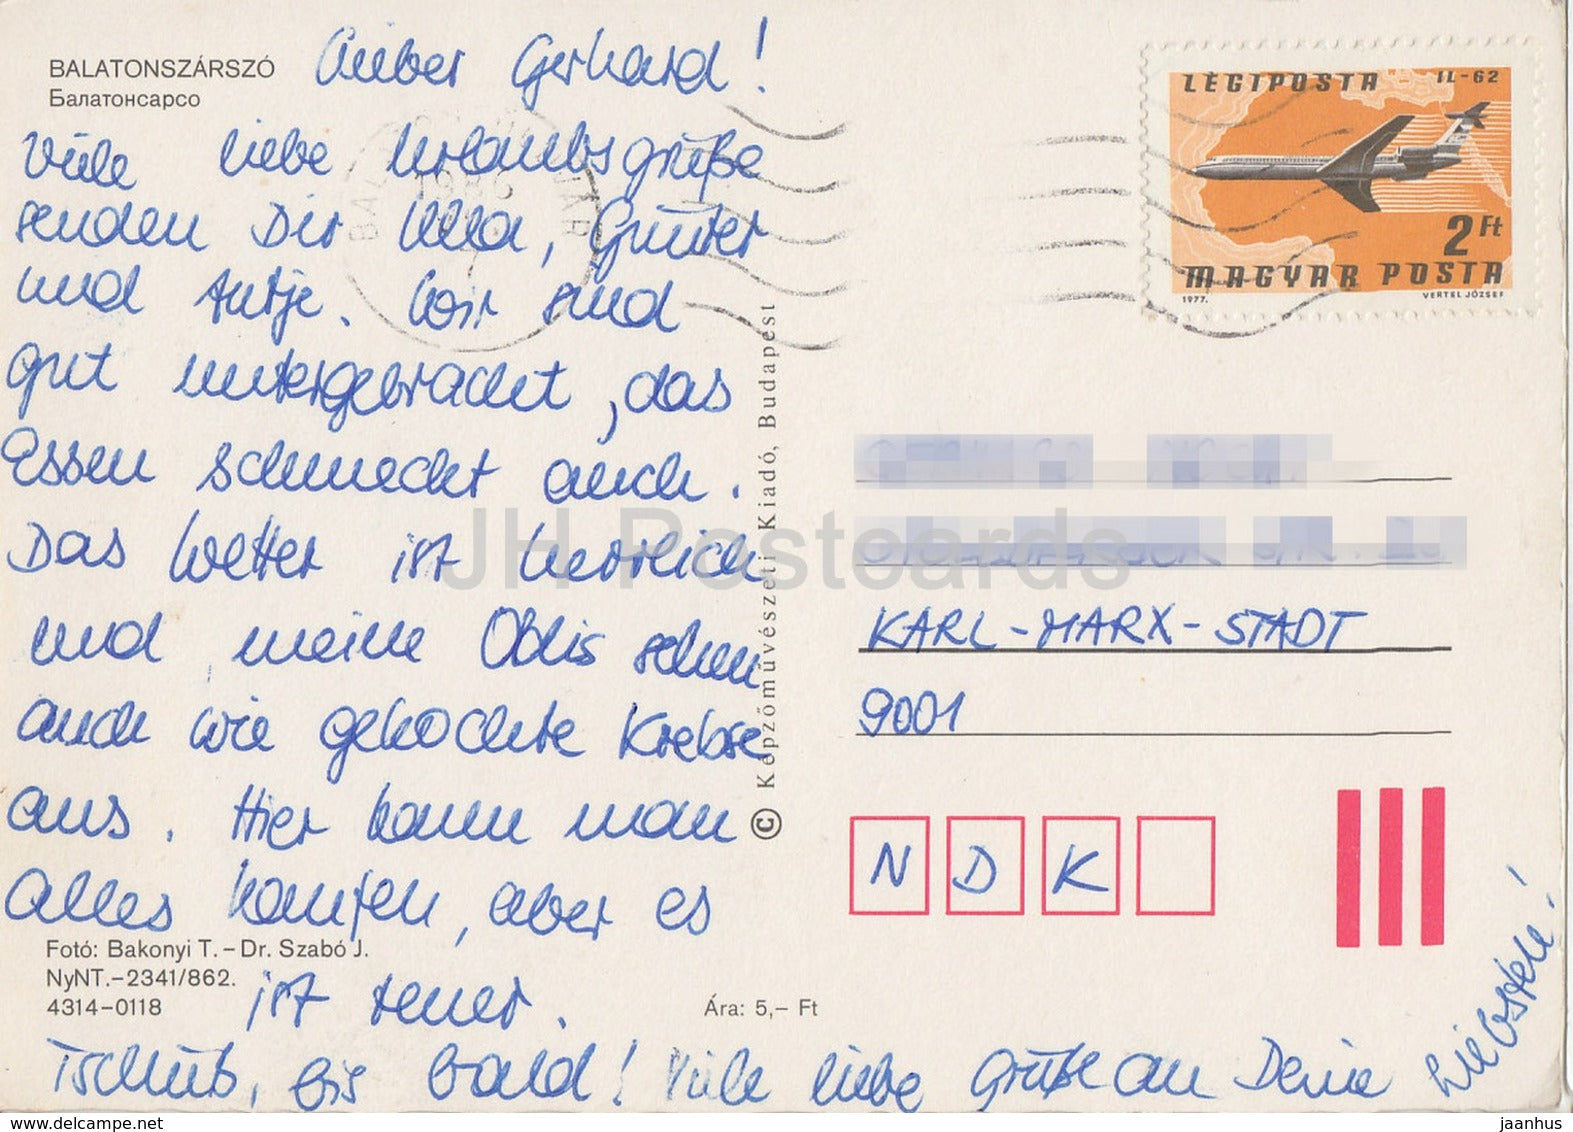 BALATONSZÁRSZÓ
Балатонсарсо
Lieber Gerhard!
Viele liebe Urlaubsgrüße
senden Dir Ulla, Günter
und Antje. Wir sind
gut untergebracht, das
Essen schmeckt auch.
Das Wetter ist herrlich
und meine Oblis sehen
auch wie gekochte Krebse
aus. Hier kann man
alles kaufen, aber es
ist teuer.
Tschüß, bis bald! Viele liebe Grüße an Deine
Liebste!
Fotó: Bakonyi T.–Dr. Szabó J.
NyNT.–2341/862.
4314–0118
Ára: 5,– Ft
© Képzőművészeti Kiadó, Budapest
LÉGIPOSTA IL-62
2 Ft
MAGYAR POSTA
1977. VERTEL JÓZSEF
KARL-MARX-STADT
9001
N D K
JH Postcards
www.delcampe.net
jaanhus